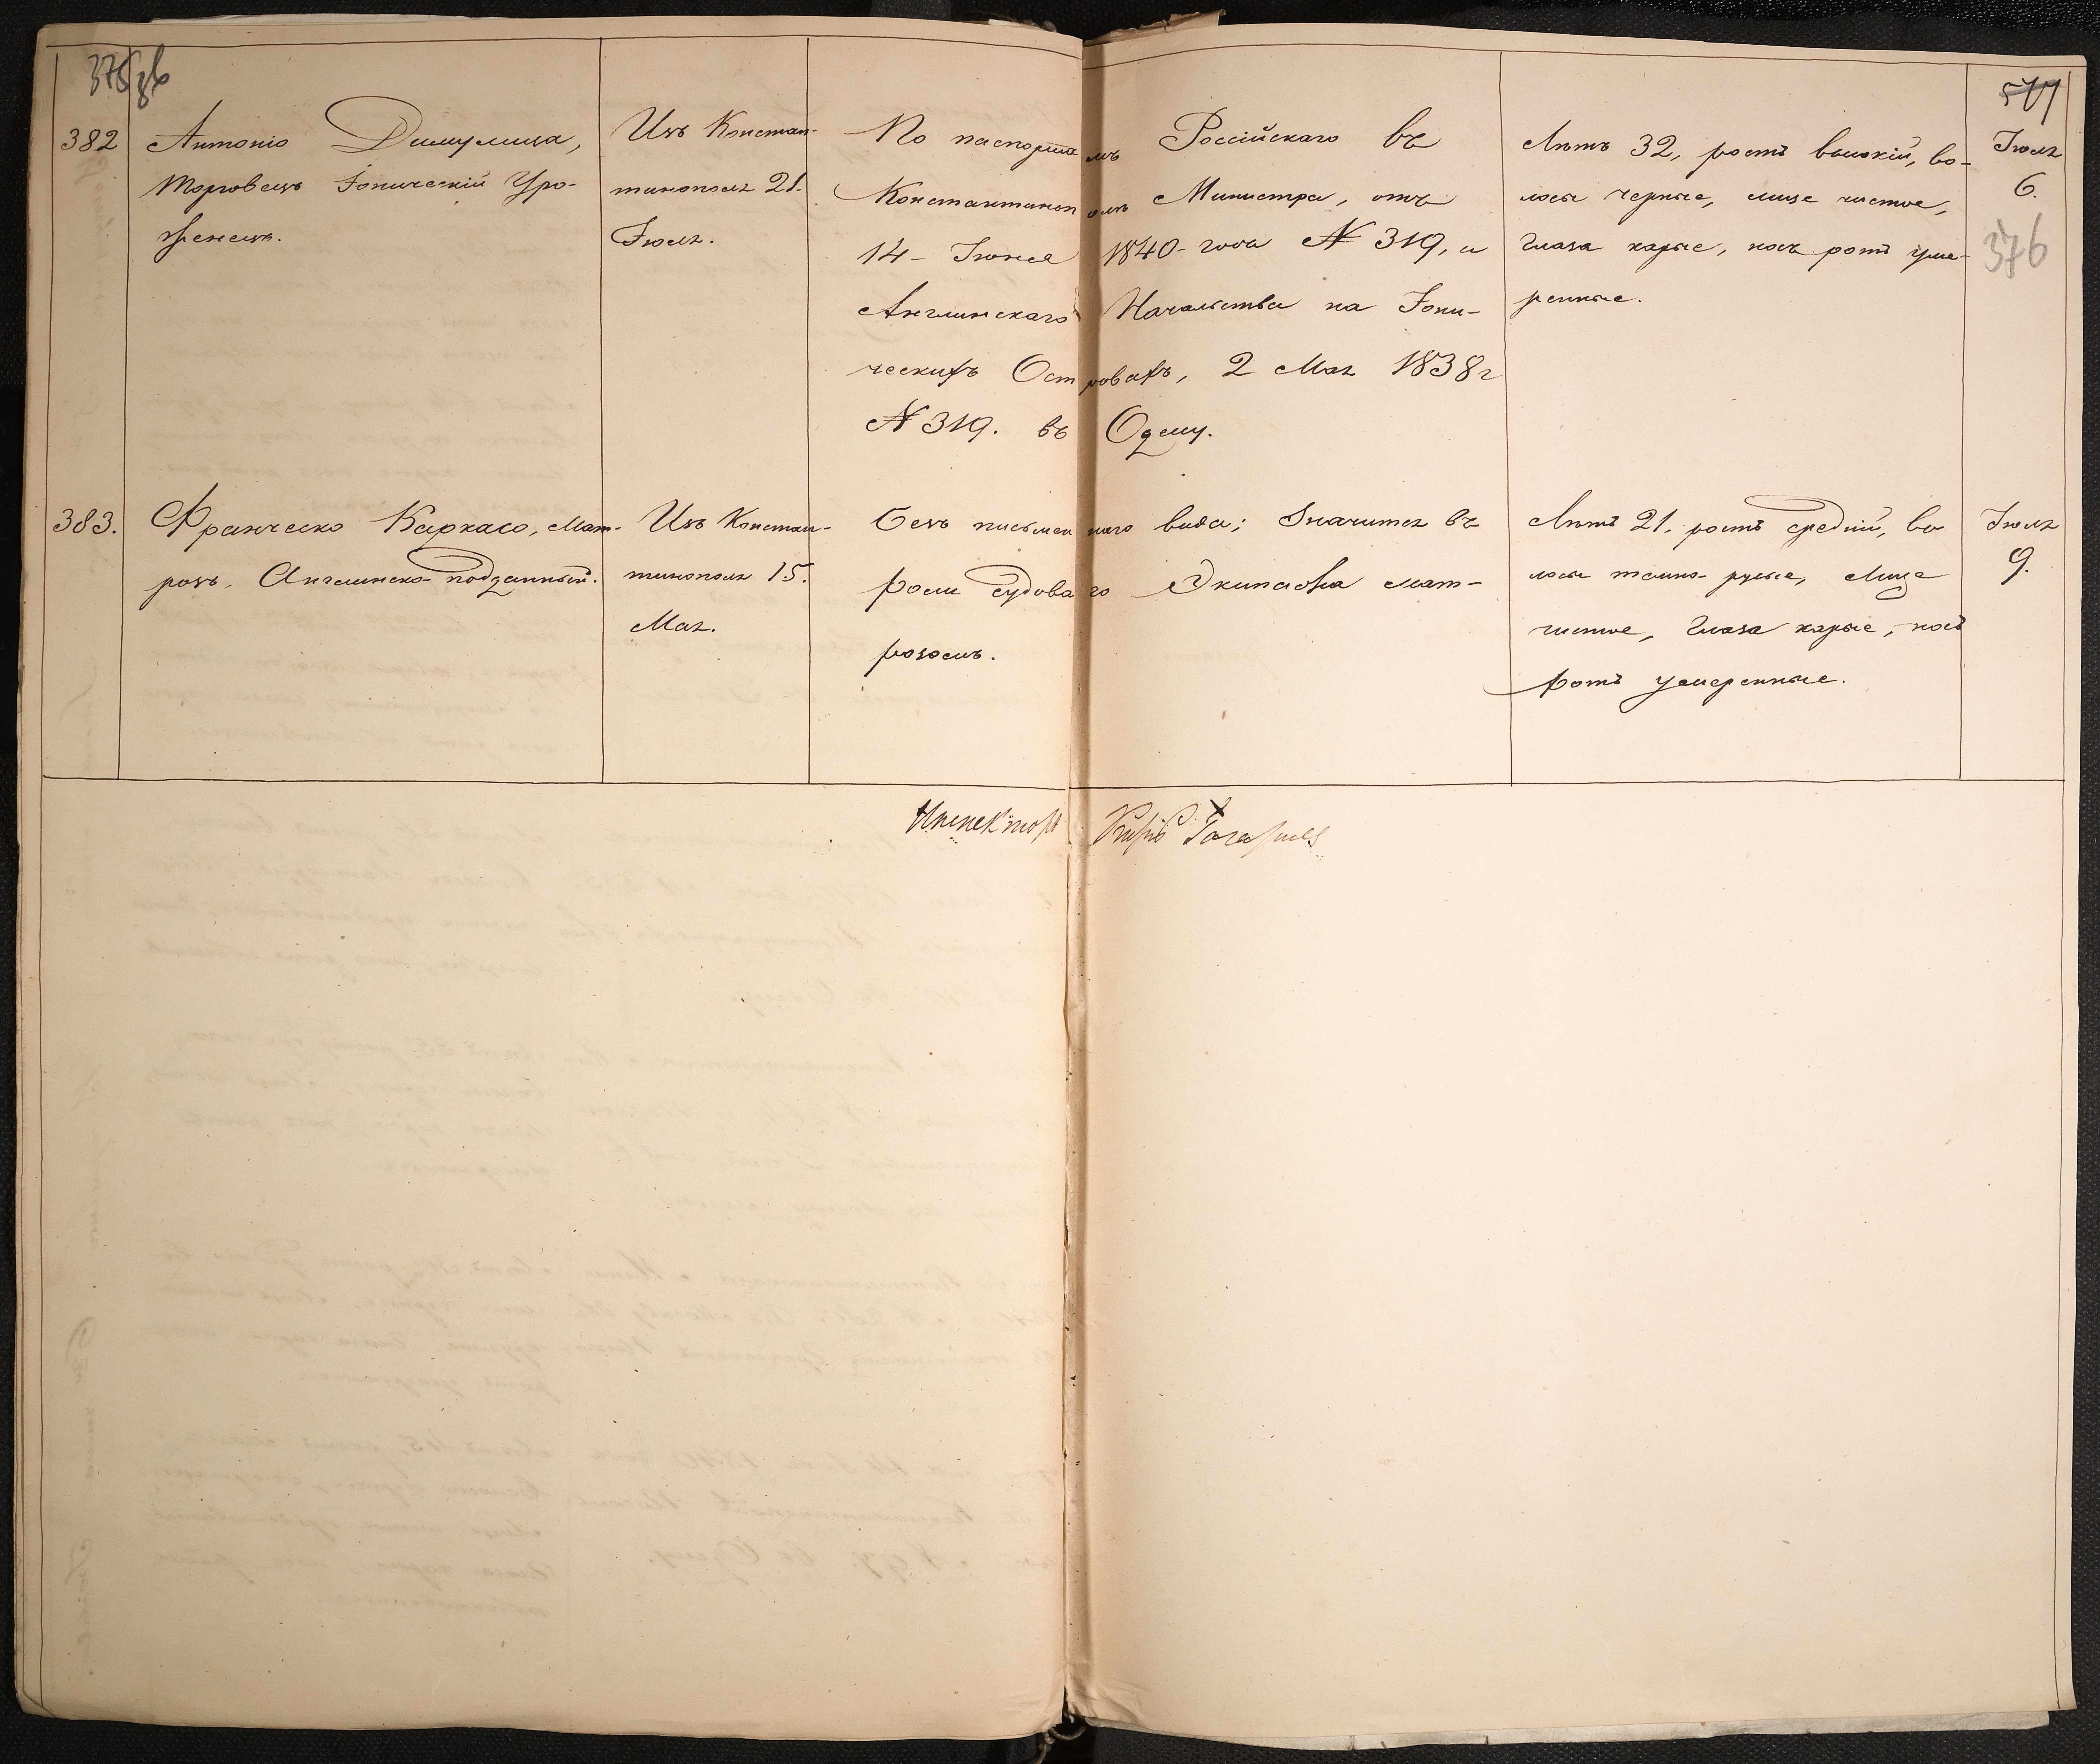 375 об
577
376
382
Антоніо Димулица,
торговецъ Іоническій Уро-
женецъ.
Изъ Констан-
тинополя 21.
Іюля.
По паспортамъ Россійскаго въ
Константинополѣ Министра, отъ
14 - Іюня 1840 - года № 319, и
Англинскаго Начальства на Іони-
ческихъ Островахъ, 2 Мая 1838 г
№ 319. въ Одессу.
Лѣтъ 32, ростъ высокій, во-
лосы черные, лице чистое,
глаза каріе, носъ ротъ уме-
ренные.
Іюля
6.
383.
Франческо Каркасо, мат-
розъ, Англинско-подданный.
Изъ Констан-
тинополя 15.
Мая.
Безъ письменнаго вида; Значится въ
роли судоваго Экипажа мат-
розомъ.
Лѣтъ 21, ростъ средній, во
лосы темно-русые, Лице
чистое, глаза каріе, носъ
ротъ умеренные.
Іюля
9.
Инспекторъ Князь